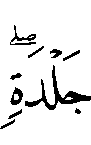 جَلْدَةٍۖ